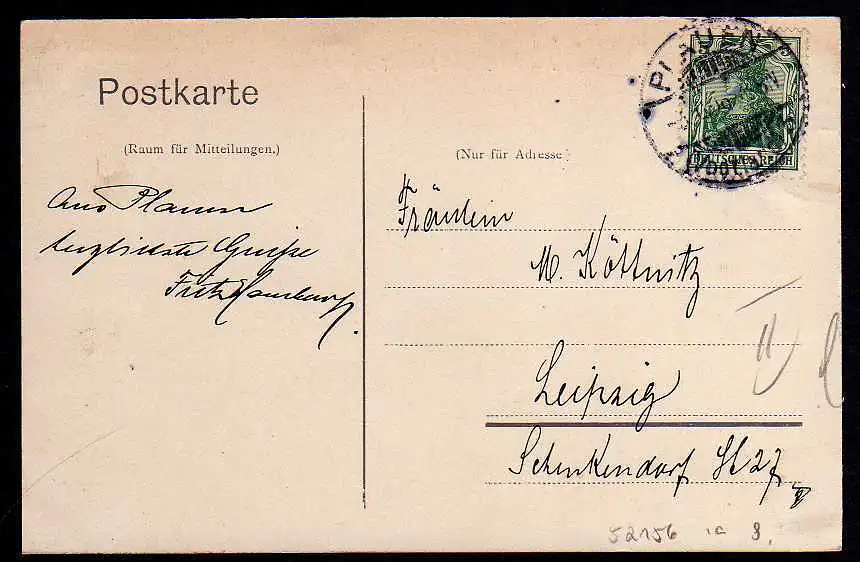 Postkarte
(Raum für Mitteilungen.)
Aus Plauen
herzlichste Grüße
Fritz
(Nur für Adresse.)
PLAUEN
(Vogtl.)
DEUTSCHES REICH
Fräulein
M. Köttnitz
Leipzig
Schenkendorf St 27
II
52156 ia 8.